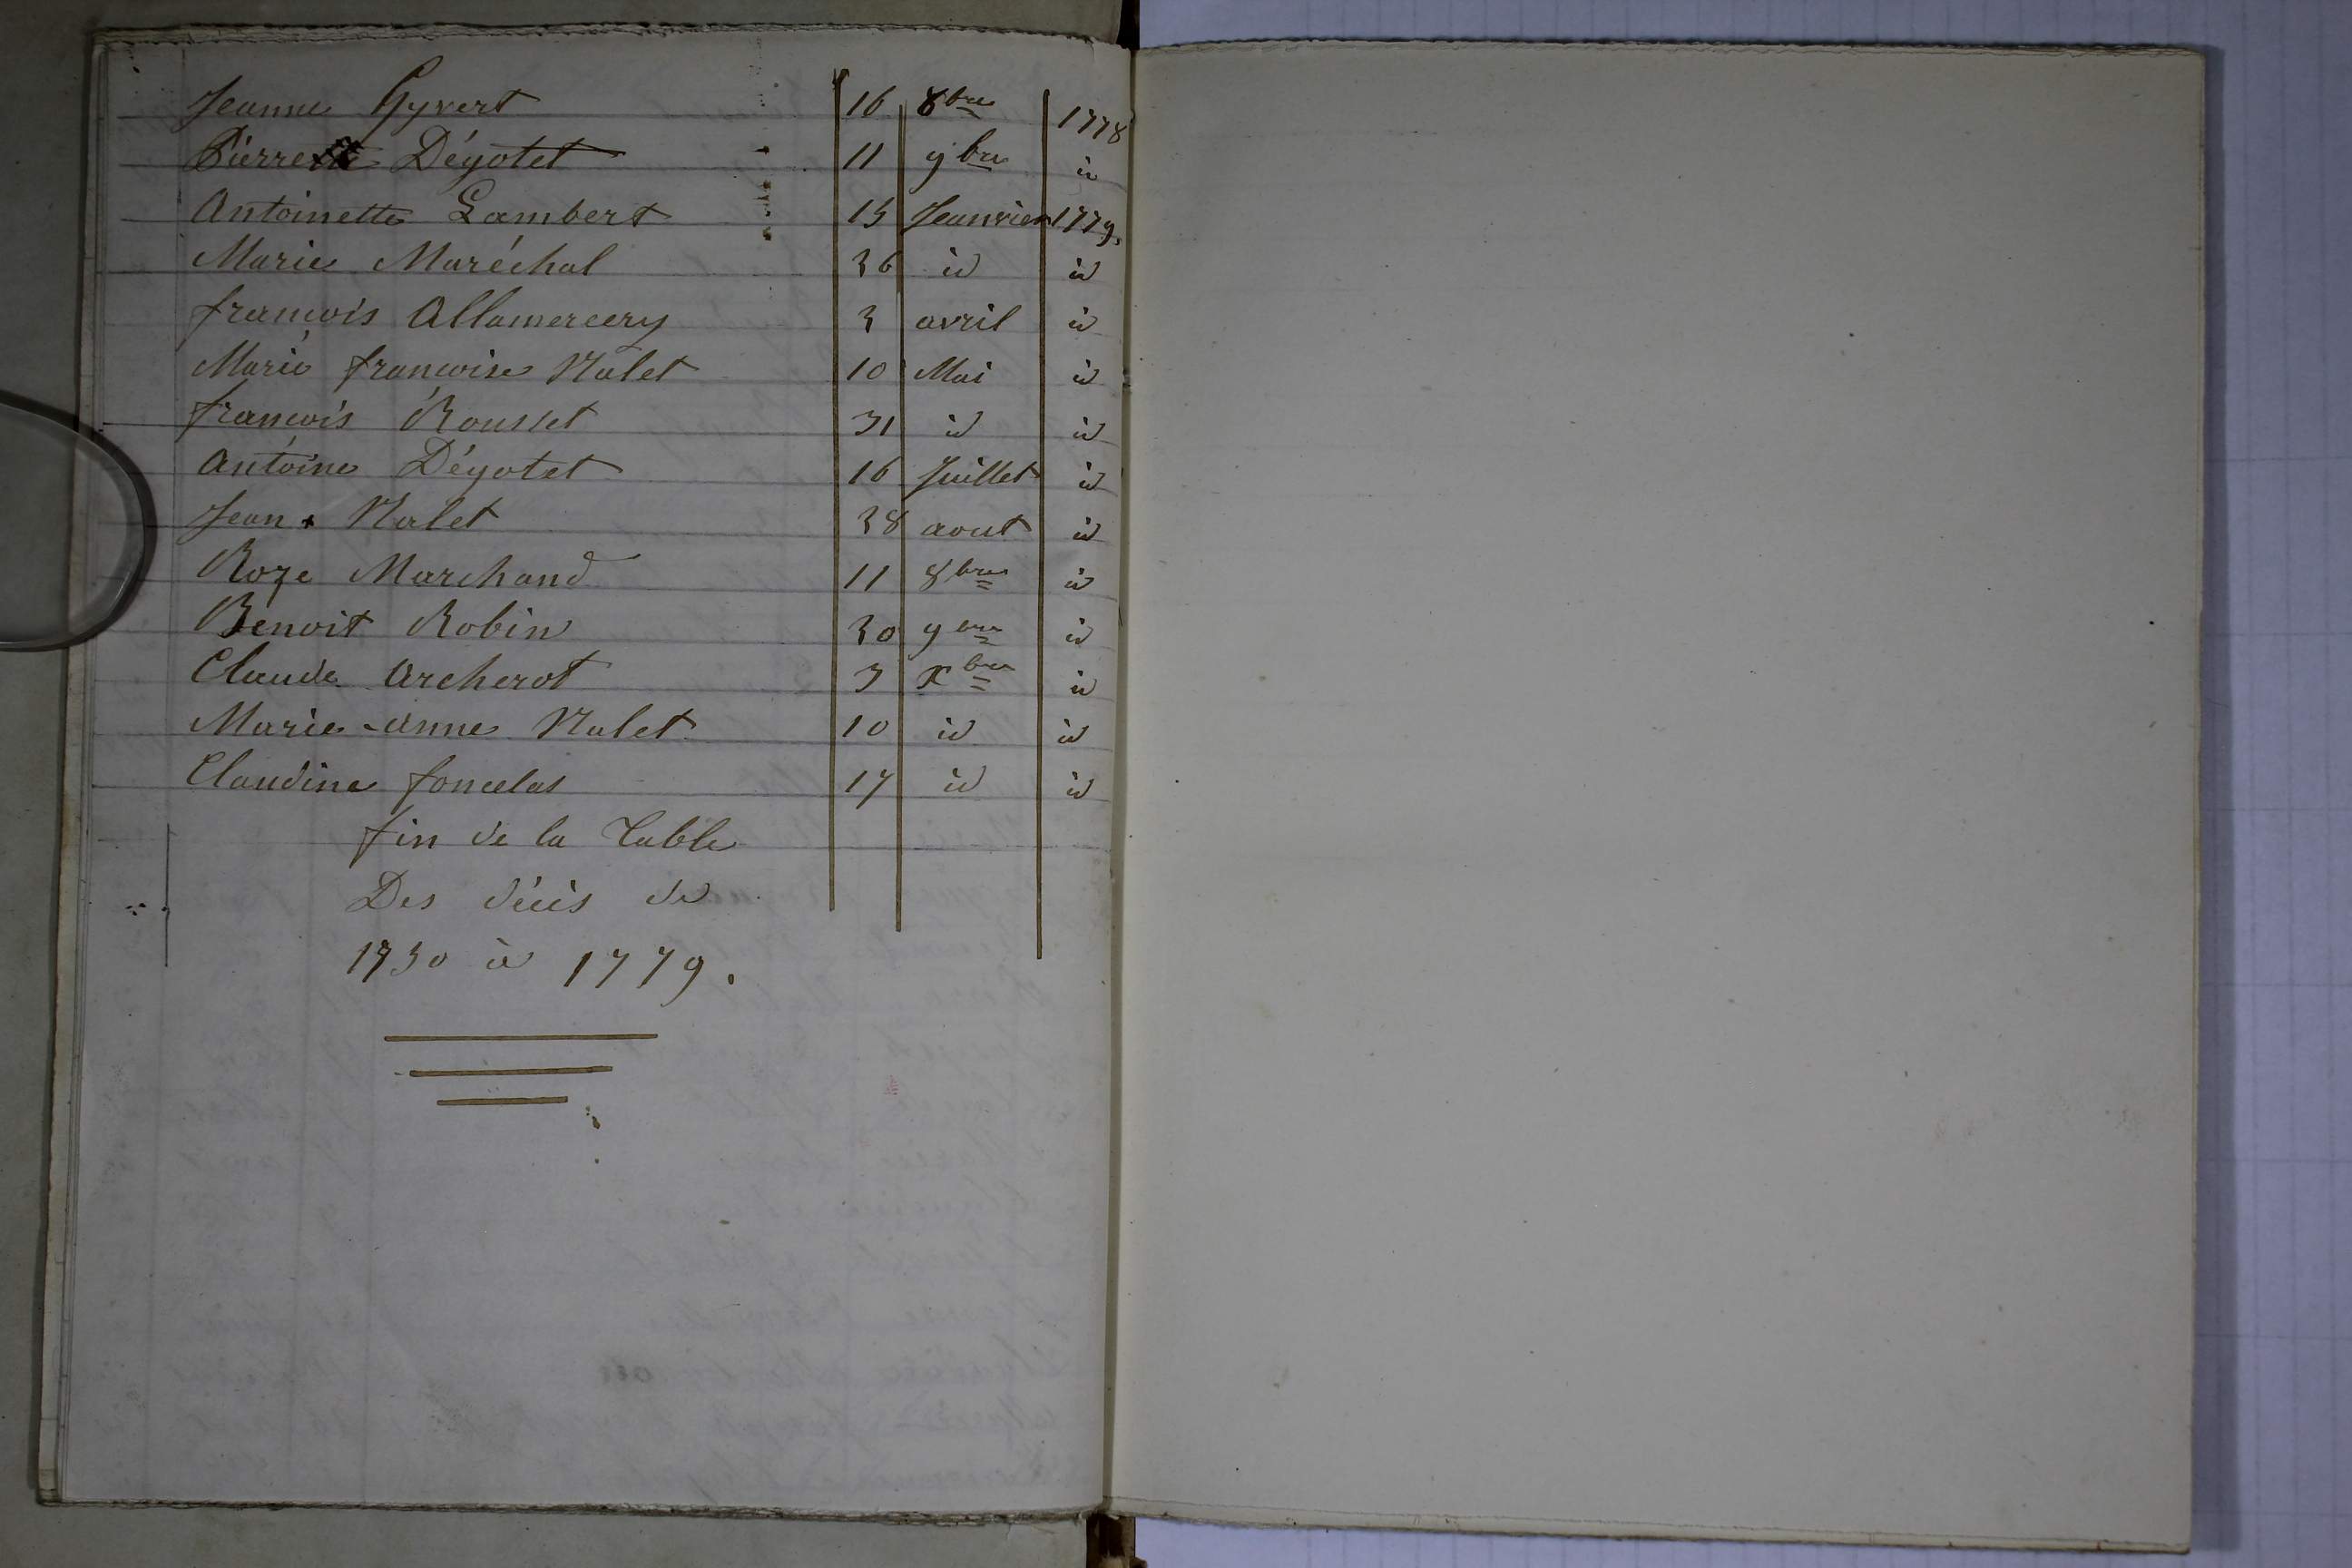 Jeanne Gyvert 16 8bre 1778
Pierre Dégotet 11 9bre id
Antoinette Lambert 15 Jeanvier 1779.
Marie Maréchal 26 id id
françois Allamercery 2 avril id
Marie françoise Nalet 10 Mai id
françois Rousset 31 id id
Antoine Dégotet 16 Juillet id
Jean Nalet 28 aout id
Roze Marchand 11 8bre id
Benoit Robin 20 9bre id
Claude Archerot 3 xbre id
Marie-anne Nalet 10 id id
Claudine foncelas 17 id id
fin de la Table
Des décès de
1750 à 1779.